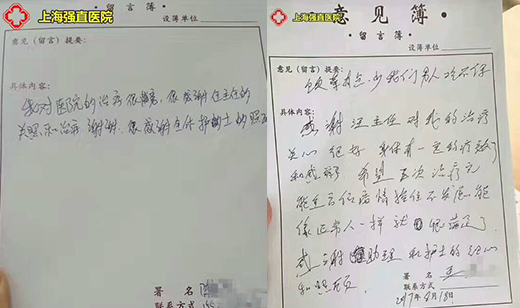 上海强直医院
意见簿
留言簿
设簿单位
意见（留言）提要：
具体内容：
我对医院的治疗很满意，很感谢汪主任的
关照和治疗 谢谢，很感谢全体护士的照顾
署名
联系方式
上海强直医院
意见簿
留言簿
设簿单位
意见（留言）提要：
饭菜有点少我们男人吃不饱
具体内容：
感谢汪主任对我的治疗
关心 很好 身体有一定的疗效
和感 希望 治疗
病情 不发展 能
像正常人一样 就 很满足了
感谢 助理和护士的关心
和照顾
署名
联系方式
2017年4月18日